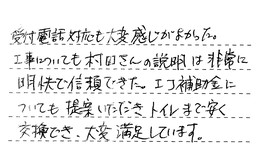 受付電話対応も大変感じがよかった。
工事についても村田さんの説明は非常に
明快で信頼できた。エコ補助金に
ついても提案いただきトイレまで安く
交換でき、大変満足しています。